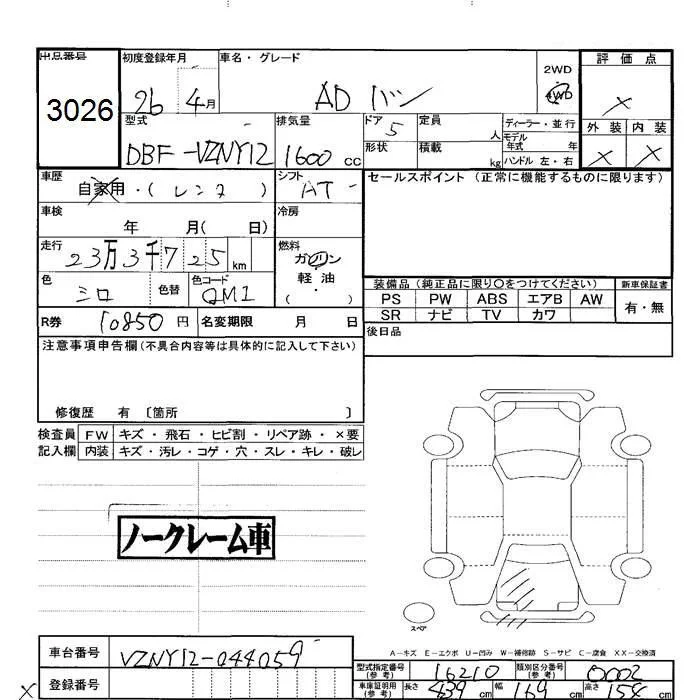 出品番号 初度登録年月 車名・グレード 2WD 評価点
3026 26 4月 AD バン 4WD ×
型式 排気量 ドア 5 定員 人 ディーラー・並行 外装 内装
DBF-VZNY12 1600cc 形状 積載 kg モデル年式 年 × ×
ハンドル 左・右
車歴 自家用・(レンタ) シフト AT セールスポイント (正常に機能するものに限ります)
車検 年 月( 日) 冷房
走行 23万3千725km 燃料 ガソリン
軽・油
( )
色 シロ 色替 色コード QM1
装備品 (純正品に限り〇をつけてください) 新車保証書
PS PW ABS エアB AW 有・無
SR ナビ TV カワ
R券 10850円 名変期限 月 日 後日品
注意事項申告欄(不具合内容等は具体的に記入して下さい)
修復歴 有 〔箇所 〕
検査員 FW キズ・飛石・ヒビ割・リペア跡・×要
記入欄 内装 キズ・汚レ・コゲ・穴・スレ・キレ・破レ
ノークレーム車
スペア
A-キズ E-エクボ U-凹み W-補修跡 S-サビ C-腐食 XX-交換済
車台番号 VZNY12-044059
型式指定番号(参考) 16210 類別区分番号(参考) 0002
登録番号
車庫証明用(参考) 長さ 439cm 幅 169cm 高さ 154cm
×